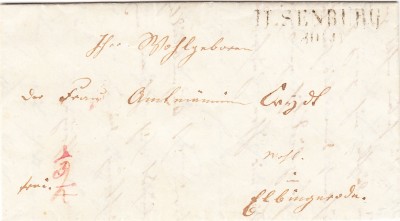 ILSENBURG
Ihro Wohlgeboren
der Frau Amtmännin
Wohl.
in
Elbingerode.
frei.